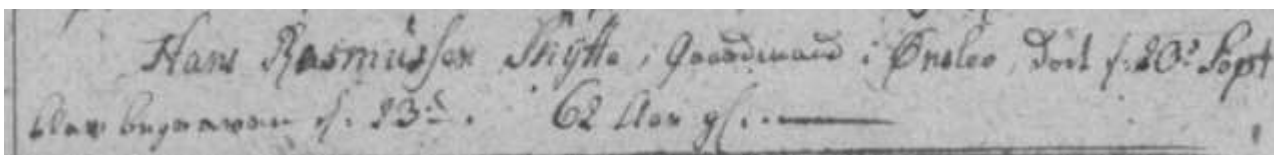 Hans Rasmussen Skytte, Gaardmand i Ønslev, død d. 20de Sept
blev begraven d. 23de. 62 Aar gl.